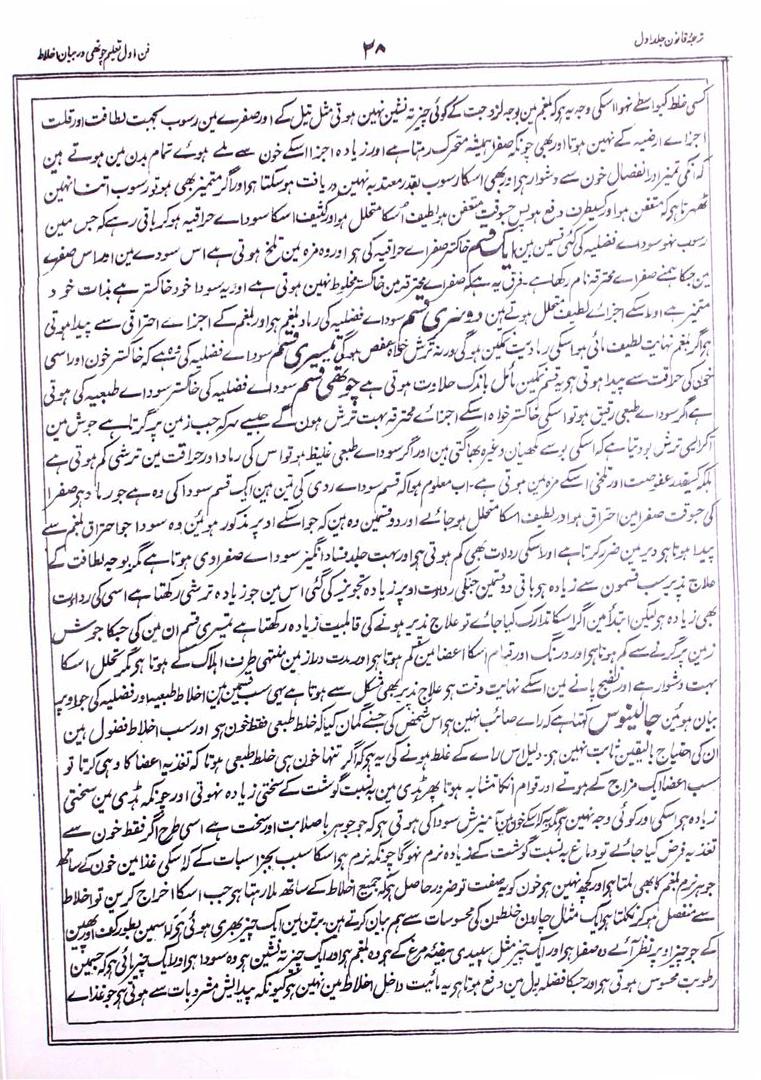 ترجمۂ قانون جلد اول
۳۸
فن اول تعلیم چوتھی در بیان اخلاط
کسی خلط کیواسطے نہوا اسکی وجہ یہ ہوکہ بلغم مین بوجہ لزوجت کے کوئی چیز تہ نشین نہین ہوتی مثل تیل کے اور صفرے مین رسوب بجہت لطافت اور قلت
اجزاے ارضیہ کے نہین ہوتا اور بھی چونکہ صفرا ہمیشہ متحرک رہتا ہے اور زیادہ اجزا اسکے خون سے ملے ہوے تمام بدن مین ہوتے ہین
کہ اُنکی تمیز اور انفصال خون سے دشوار ہو اور بھی اسکا رسوب بقدر معتدبہ نہین دریافت ہوسکتا ہو اور اگر متمیز بھی ہو تو رسوب اتنا نہین
ٹھہرتا ہو کہ متعفن ہو اور کسیطرف دفع ہو پس جسوقت متعفن ہو لطیف اسکا متحلل ہو اور کثیف اسکا سوداے حراقیہ ہو کر باقی رہے کہ جس مین
رسوب نہو سوداے فضلیہ کی کئی قسمین ہین ایک قسم خاکستر صفراے حراقیہ کی ہو اور وہ مزہ مین تلخ ہوتی ہے اس سودے مین اور اس صفرے
مین جسکا ہمنے صفراے محترقہ نام رکھا ہے۔ فرق یہ ہے کہ صفراے محترقہ مین خاکستر مخلوط نہین ہوتی ہے اور یہ سودا خود خاکستر ہے بذات خود
متمیز ہے اور اسکے اجزاے لطیف متحلل ہوتے ہین دوسری قسم سوداے فضلیہ کی رماد بلغم ہو اور بلغم کے اجزاے احتراقی سے پیدا ہوتی
ہو اگر بلغم نہایت لطیف مائی ہو اسکی رمادیت نمکین ہوگی ورنہ ترش خواہ عفص ہوگی تیسری قسم سوداے فضلیہ کی وہ ہے کہ خاکستر خون اور اسی
خون کی حراقت سے پیدا ہوتی ہو یہ قسم نمکین مائل باندک حلاوت ہوتی ہے چوتھی قسم سوداے فضلیہ کی خاکستر سوداے طبیعیہ کی ہوتی
ہے اگر سوداے طبعی رقیق ہو تو اسکی خاکستر خواہ اسکے اجزاے محترقہ بہت ترش ہونگے جیسے سرکہ جب زمین پر گرتا ہے جوش مین
آکر ایسی ترش بو دیتا ہے کہ اسکی بو سے مکھیان وغیرہ بھاگتی ہین اور اگر سوداے طبعی غلیظ ہو تو اس کی رماد اور حراقت مین ترشی کم ہوتی ہے
بلکہ کسیقدر عفوصت اور تلخی اسکے مزہ مین ہوتی ہے۔ اب معلوم ہوا کہ قسم سوداے ردی کی تین ہین ایک قسم سودا کی وہ ہے جو رماد ہو صفرا
کی جسوقت صفرا مین احتراق ہو اور لطیف اسکا متحلل ہو جاے اور دو قسمین وہ ہین کہ جو اسکے اوپر مذکور ہوئین وہ سودا جو احتراق بلغم سے
پیدا ہوتا ہو دیر مین ضرر کرتا ہے اور اسکی رداءت بھی کم ہوتی ہو اور بہت جلد فساد انگیز سوداے صفراوی ہوتا ہے مگر بوجہ لطافت کے
علاج پذیر سب قسمون سے زیادہ ہو باقی دو قسمین جنکی رداءت اوپر زیادہ تجویز کی گئی اس مین جو زیادہ ترشی رکھتا ہے اسی کی رداءت
بھی زیادہ ہو لیکن ابتدا مین اگر اسکا تدارک کیا جاے تو علاج پذیر ہونے کی قابلیت زیادہ رکھتا ہے تیسری قسم ان مین کی جسکا جوش
زمین پر گرنے سے کم ہوتا ہو اور درنگ اور قیام اسکا اعضا مین کم ہوتا ہو اور مدت دراز مین منتہی طرف اہلاک کے ہوتا ہو مگر تحلل اسکا
بہت دشوار ہے اور نضج پانے مین اسکے نہایت وقت ہو علاج پذیر بھی مشکل سے ہوتا ہے یہی سب قسمین ہین اخلاط طبیعیہ اور فضلیہ کی جو اوپر
بیان ہوئین جالینوس کہتا ہے کہ راے صائب نہین ہو اس شخص کی جسنے گمان کیا کہ خلط طبعی فقط خون ہو اور سب اخلاط فضول ہین
ان کی احتیاج بالیقین ثابت نہین ہو۔ دلیل اس راے کے غلط ہونے کی یہ ہو کہ اگر تنہا خون ہی خلط طبعی ہوتا کہ تغذیہ اعضا کا وہی کرتا تو
سب اعضا ایک مزاج کے ہوتے اور قوام انکا متشابہ ہوتا پھر ہڈی مین بہ نسبت گوشت کے سختی زیادہ نہوتی اور چونکہ ہڈی مین سختی
زیادہ ہو اسکی اور کوئی وجہ نہین ہو مگر یہ کہ اسکے خون مین آمیزش سودا کی ہوتی ہو کہ جو جوہر با صلابت اور سخت ہے اسی طرح اگر فقط خون سے
تغذیہ فرض کیا جاے تو دماغ بہ نسبت گوشت کے زیادہ نرم نہوگا چونکہ نرم ہو اسکا سبب بجز اسبات کے کہ اسکی غذا مین خون کے ساتھ
جوہر نرم بلغم کا بھی ملتا ہو اور کچھ نہین ہو خون کو یہ صفت تو ضرور حاصل ہو کہ جمیع اخلاط کے ساتھ ملا رہتا ہو جب اسکا اخراج کرین تو اخلاط
سے منفصل ہو کر نکلتا ہو ایک مثال چارون خلطون کی محسوسات سے ہم بیان کرتے ہین برتن مین ایک چیز بھری ہوئی ہو اسمین بطور کف اور پھین
کے جو چیز اوپر نظر آئے وہ صفرا ہو اور ایک چیز مثل سپیدی بیضہ مرغ کے ہو وہ بلغم ہو اور ایک چیز تہ نشین ہو وہ سودا ہو اور ایک چیز مائی ہو کہ جسمین
رطوبت محسوس ہوتی ہو اور جسکا فضلہ بول مین دفع ہوتا ہو یہ مائیت داخل اخلاط مین نہین ہو کیونکہ پیدایش مشروبات سے ہوتی ہو جو غذاے